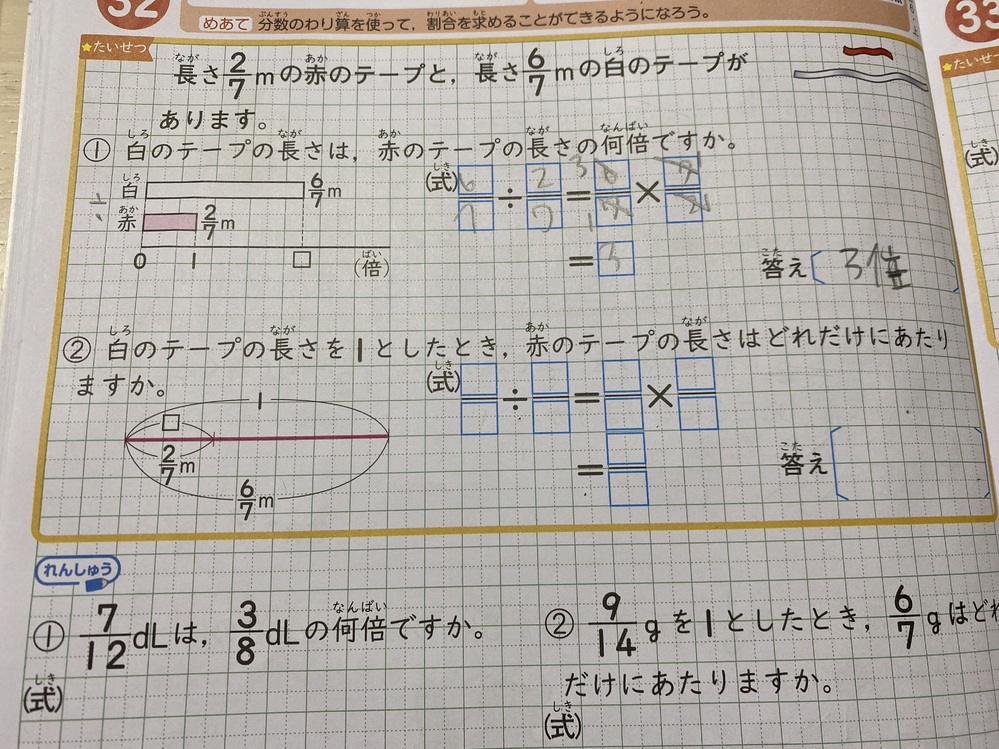 32
めあて 分数のわり算を使って，割合を求めることができるようになろう。
33
★たいせつ
長さ2/7mの赤のテープと，長さ6/7mの白のテープが
あります。
① 白のテープの長さは，赤のテープの長さの何倍ですか。
白 6/7m
赤 2/7m
0 1 □ (倍)
(式) 6/7÷2/7=6/7×7/2
3 1
=3
答え 3倍
② 白のテープの長さを1としたとき，赤のテープの長さはどれだけにあたり
ますか。
(式) □/□÷□/□=□/□×□/□
=□/□
1
□
2/7m
6/7m
答え
れんしゅう
① 7/12dLは，3/8dLの何倍ですか。
(式)
② 9/14gを1としたとき，6/7gはどれ
だけにあたりますか。
(式)
★たいせ
(式)